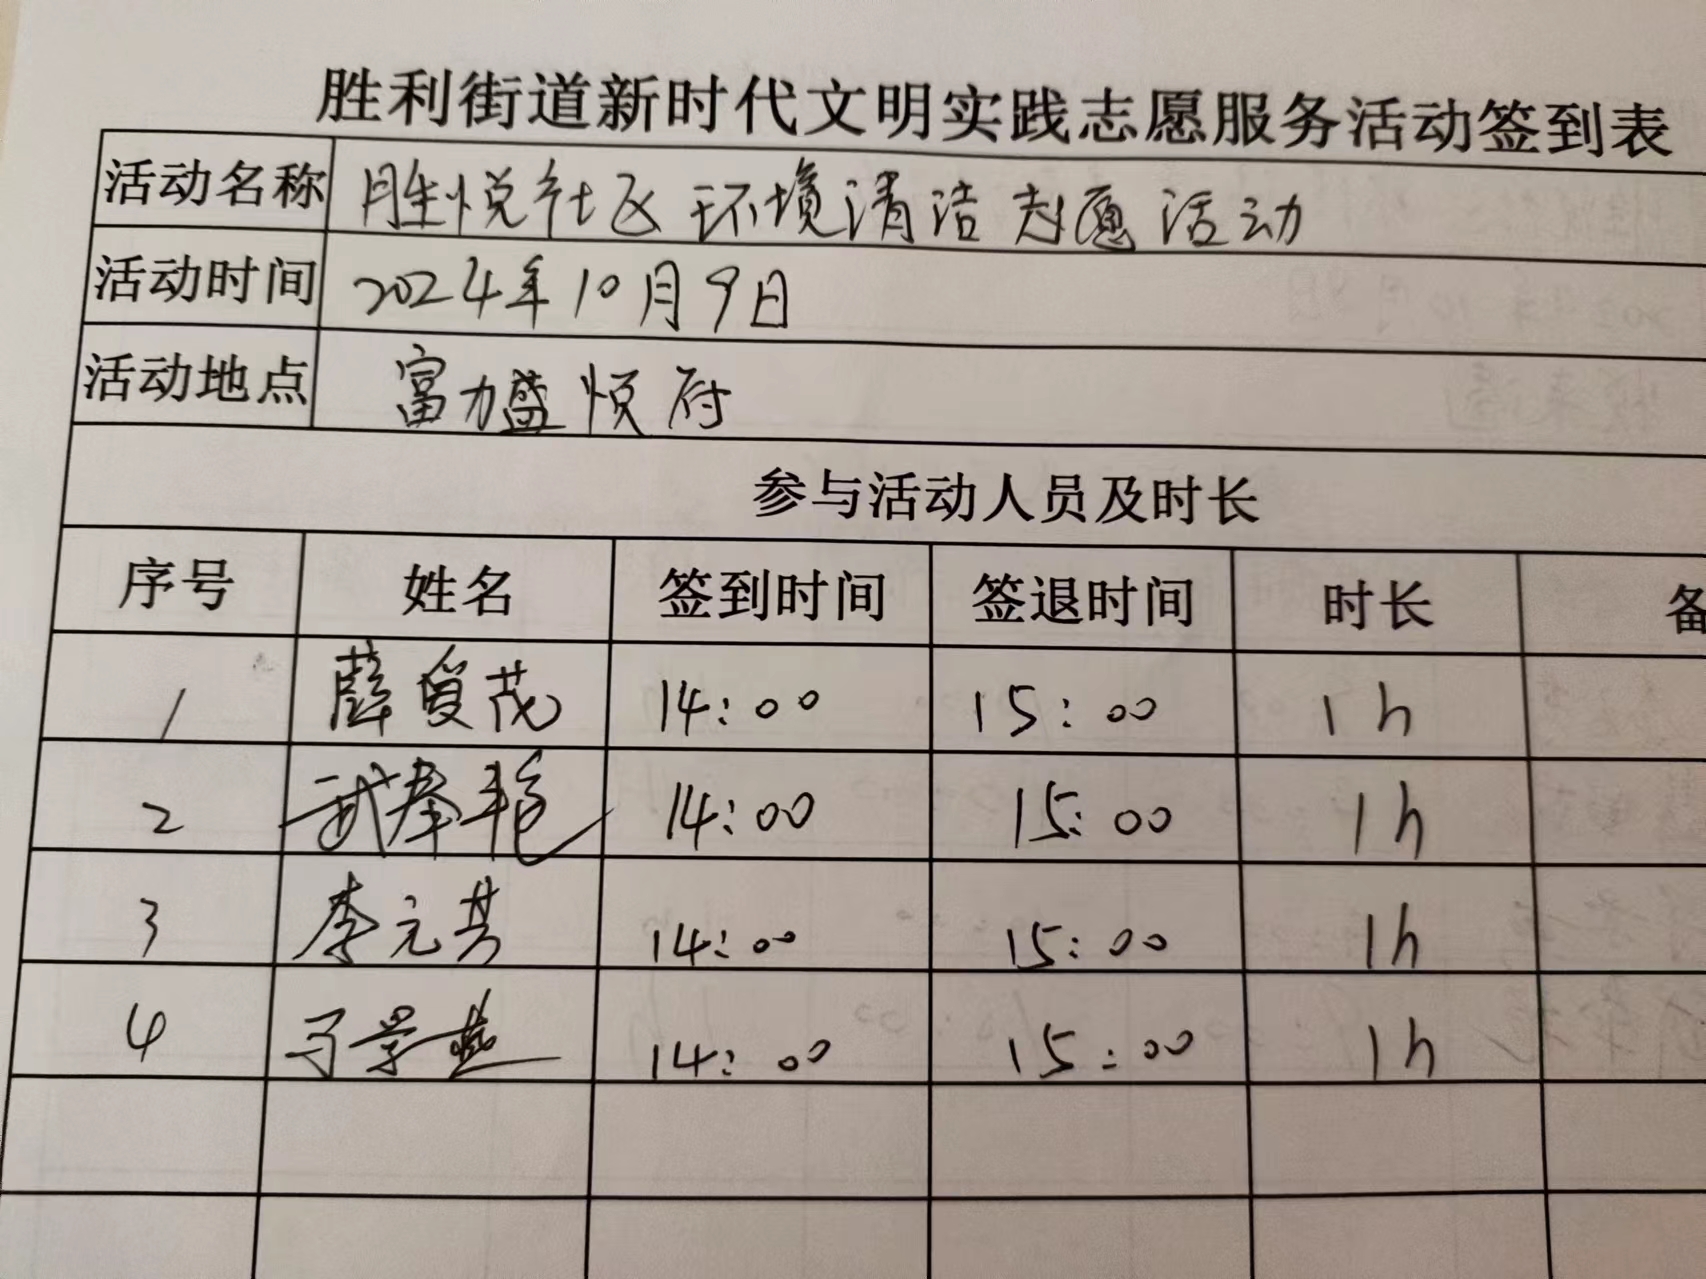 胜利街道新时代文明实践志愿服务活动签到表
活动名称 胜悦社区环境清洁志愿活动
活动时间 2024年10月9日
活动地点 富力盛悦府
参与活动人员及时长
序号 姓名 签到时间 签退时间 时长 备
1 薛复茂 14:00 15:00 1h
2 武春艳 14:00 15:00 1h
3 李元芬 14:00 15:00 1h
4 马景燕 14:00 15:00 1h